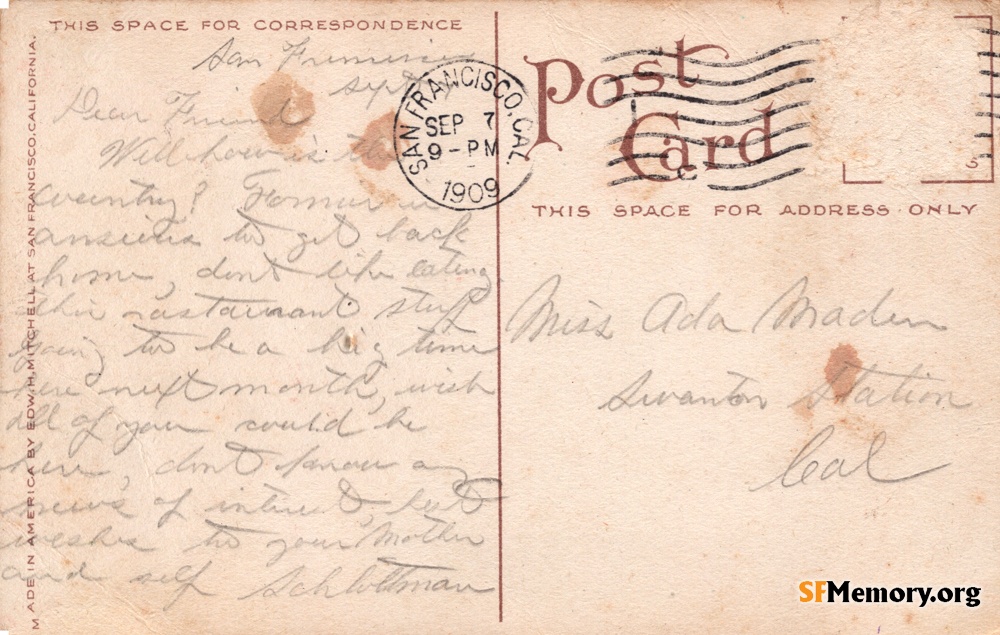 THIS SPACE FOR CORRESPONDENCE
San Francisco
Sept
Dear Friend
Well how is the
country?
anxious to get back
home, dont like eating
this restaurant stuff
going to be a big time
here next month, wish
all of you could be
here, dont know any
news of interest, best
wishes to your Mother
and self Schlottman
MADE IN AMERICA BY EDW. H. MITCHELL AT SAN FRANCISCO, CALIFORNIA.
SAN FRANCISCO, CAL.
SEP 7
9-PM
1909
Post
Card
S
THIS SPACE FOR ADDRESS ONLY
Miss Ada
Swanton Station
Cal
SFMemory.org